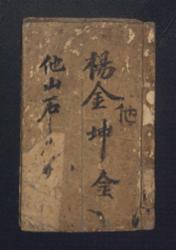 楊金坤全
他
他山石